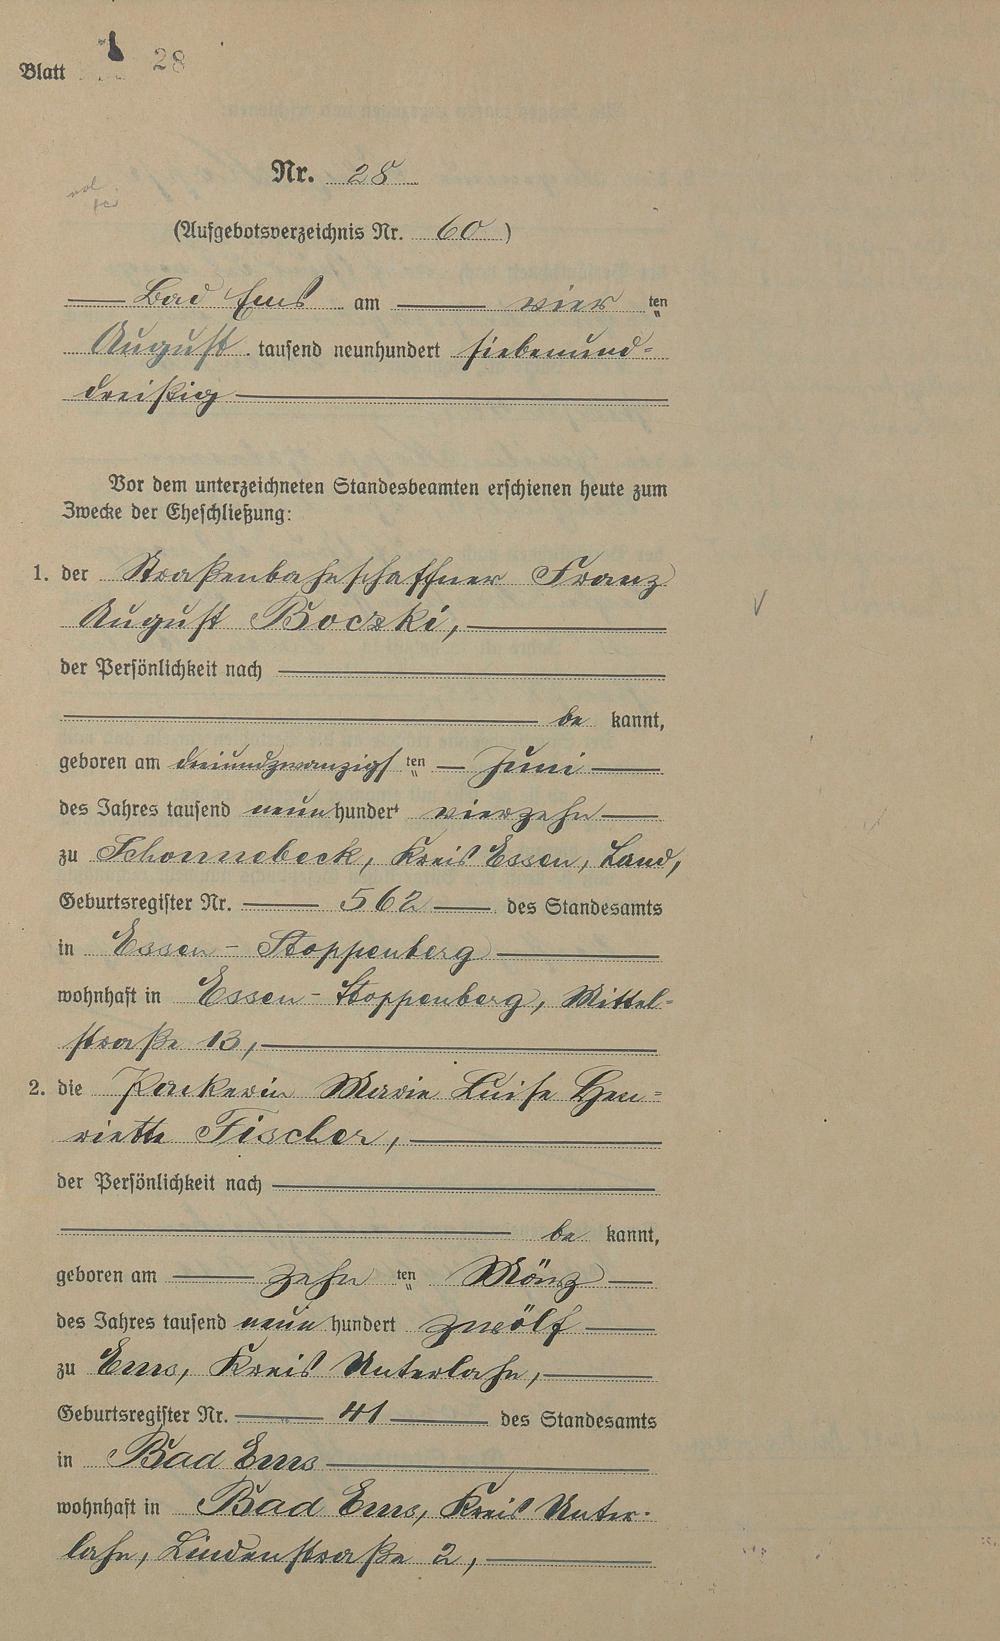 Blatt 28
Nr. 28
(Aufgebotsverzeichnis Nr. 60)
Bad Ems am vier ten
August tausend neunhundert siebenund-
dreißig
Vor dem unterzeichneten Standesbeamten erschienen heute zum
Zwecke der Eheschließung:
1. der Straßenbahnschaffner Franz
August Boczki,
der Persönlichkeit nach
be kannt,
geboren am dreiundzwanzigs ten Juni
des Jahres tausend neun hundert vierzehn
zu Schonnebeck, Kreis Essen, Land,
Geburtsregister Nr. 562 des Standesamts
in Essen-Stoppenberg
wohnhaft in Essen-Stoppenberg, Mittel-
straße 13,
2. die Packerin Marie Luise Hen-
riette Fischer,
der Persönlichkeit nach
be kannt,
geboren am zehn ten März
des Jahres tausend neun hundert zwölf
zu Ems, Kreis Unterlahn,
Geburtsregister Nr. 41 des Standesamts
in Bad Ems
wohnhaft in Bad Ems, Kreis Unter-
lahn, Lindenstraße 2,